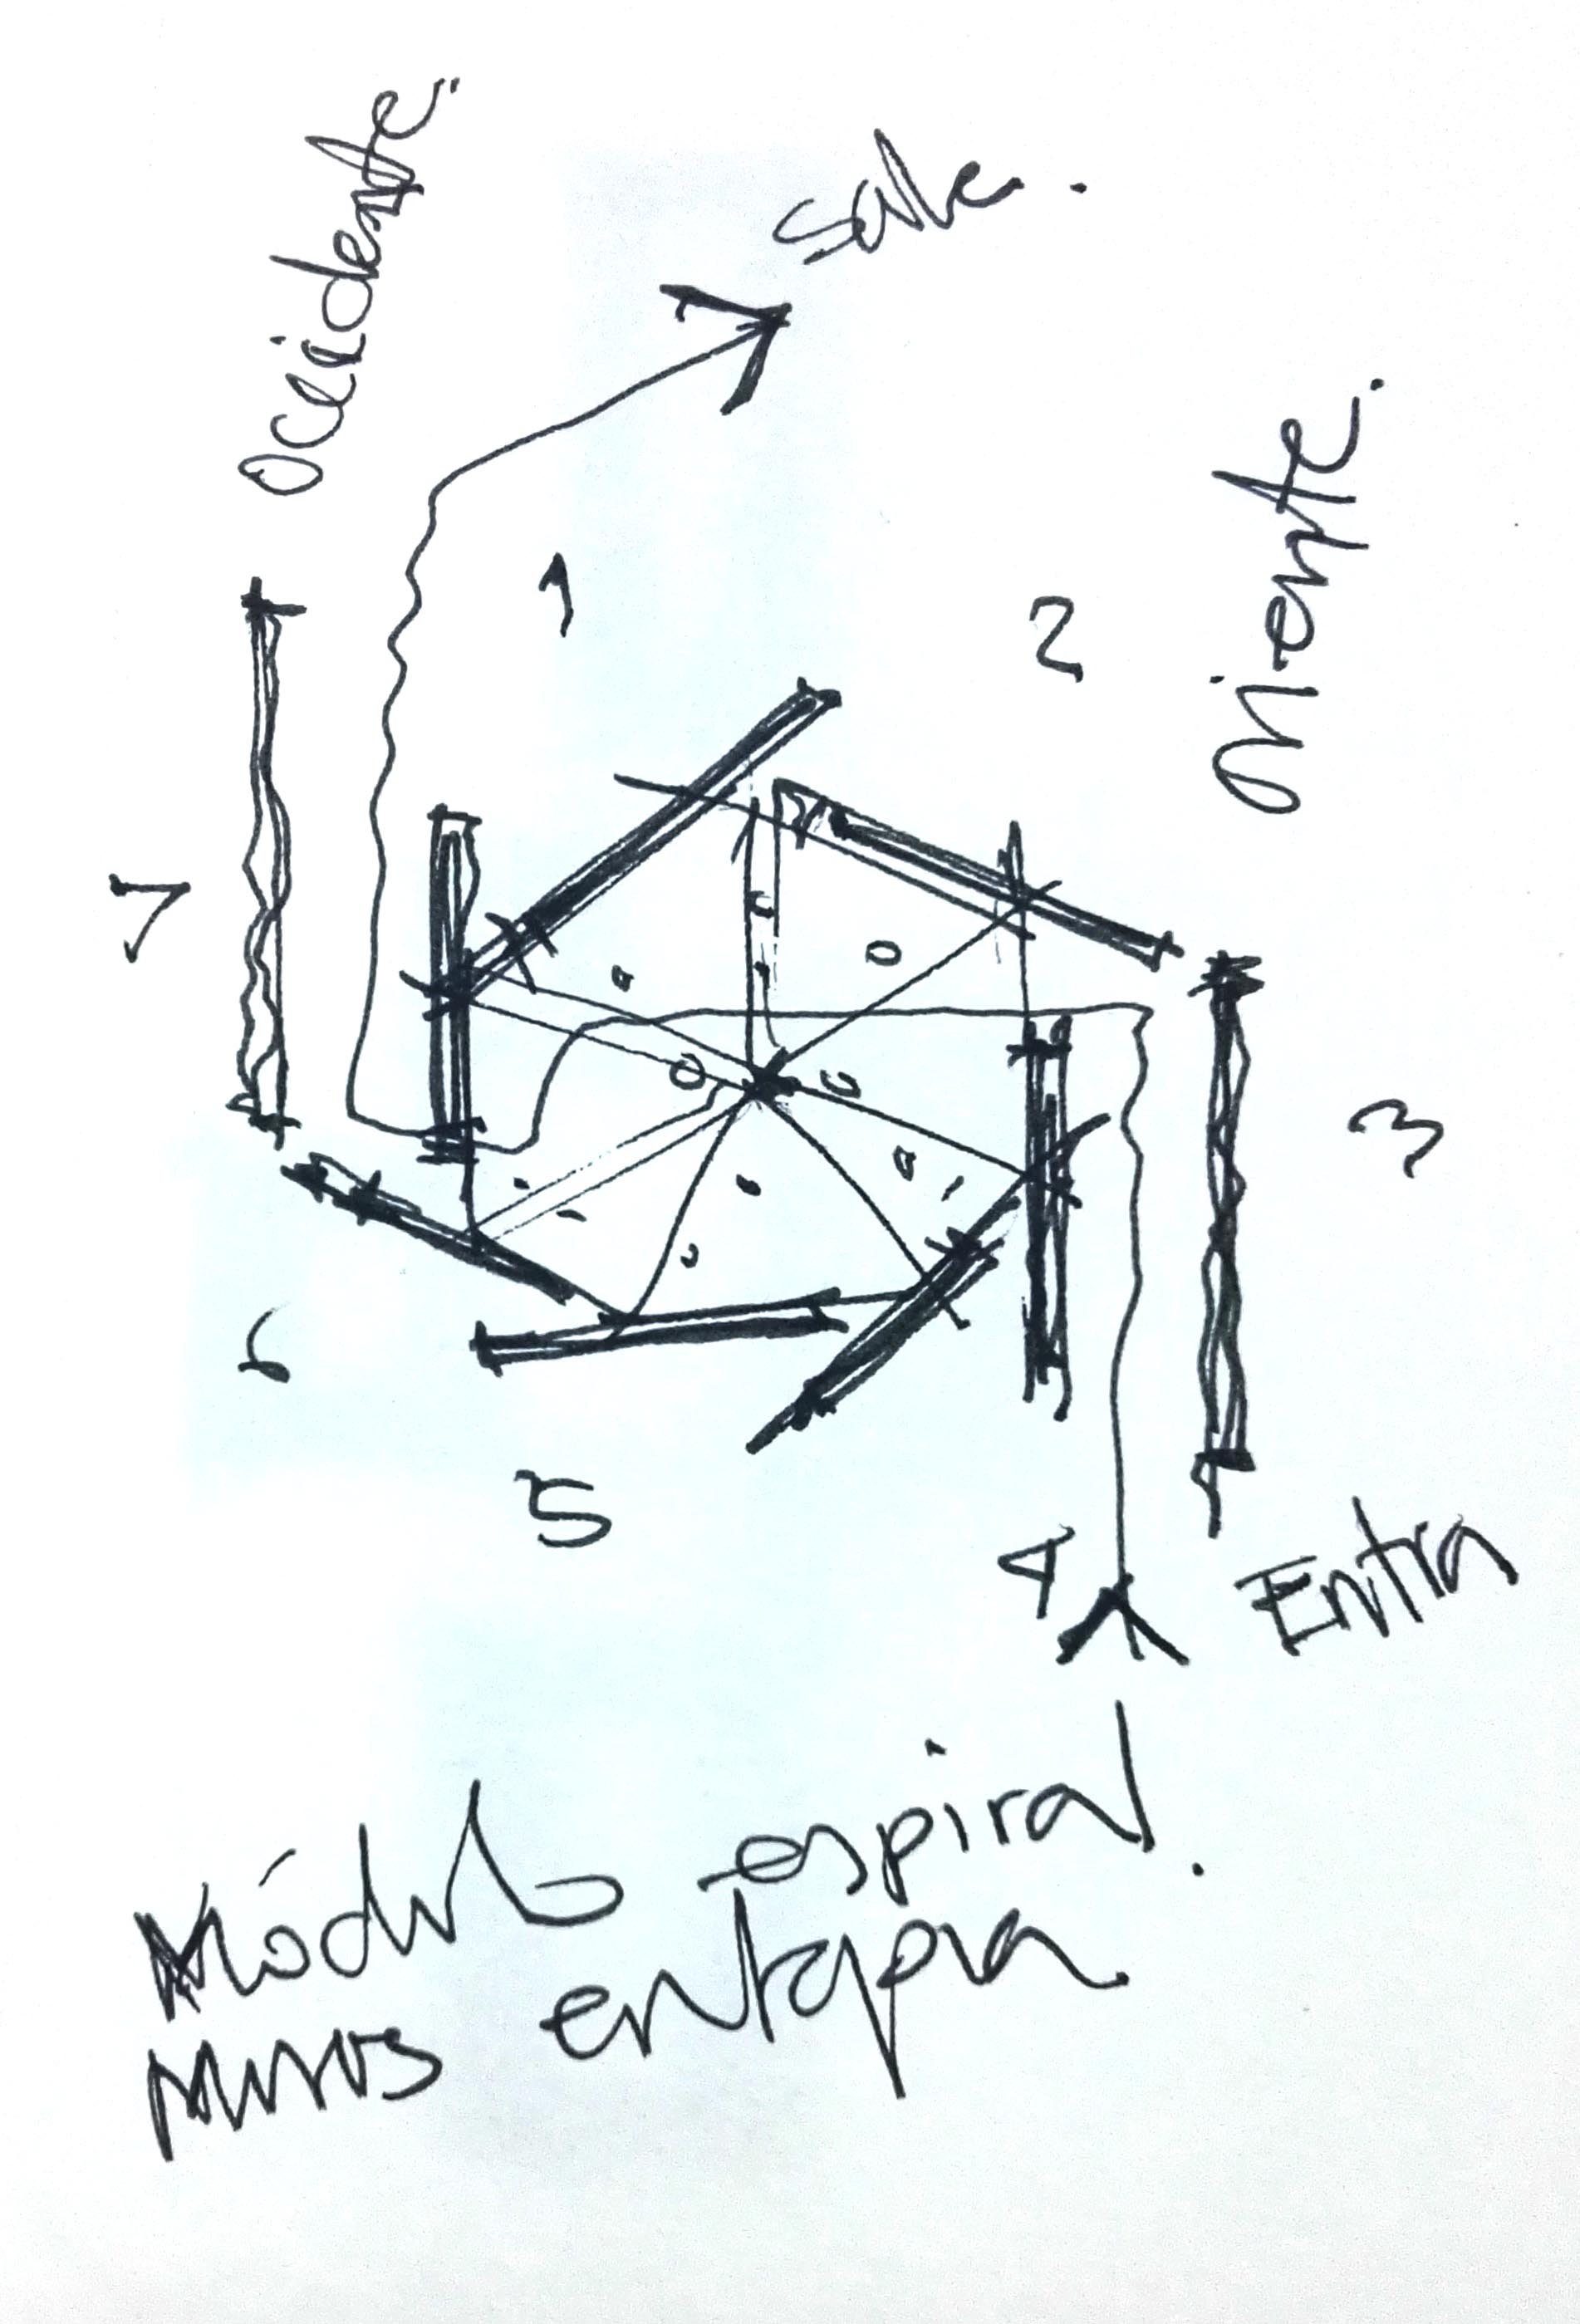 Occidente.
Sale.
Oriente.
1
2
7
3
6
5
4
Entra
Módulo espiral.
Muros entapia